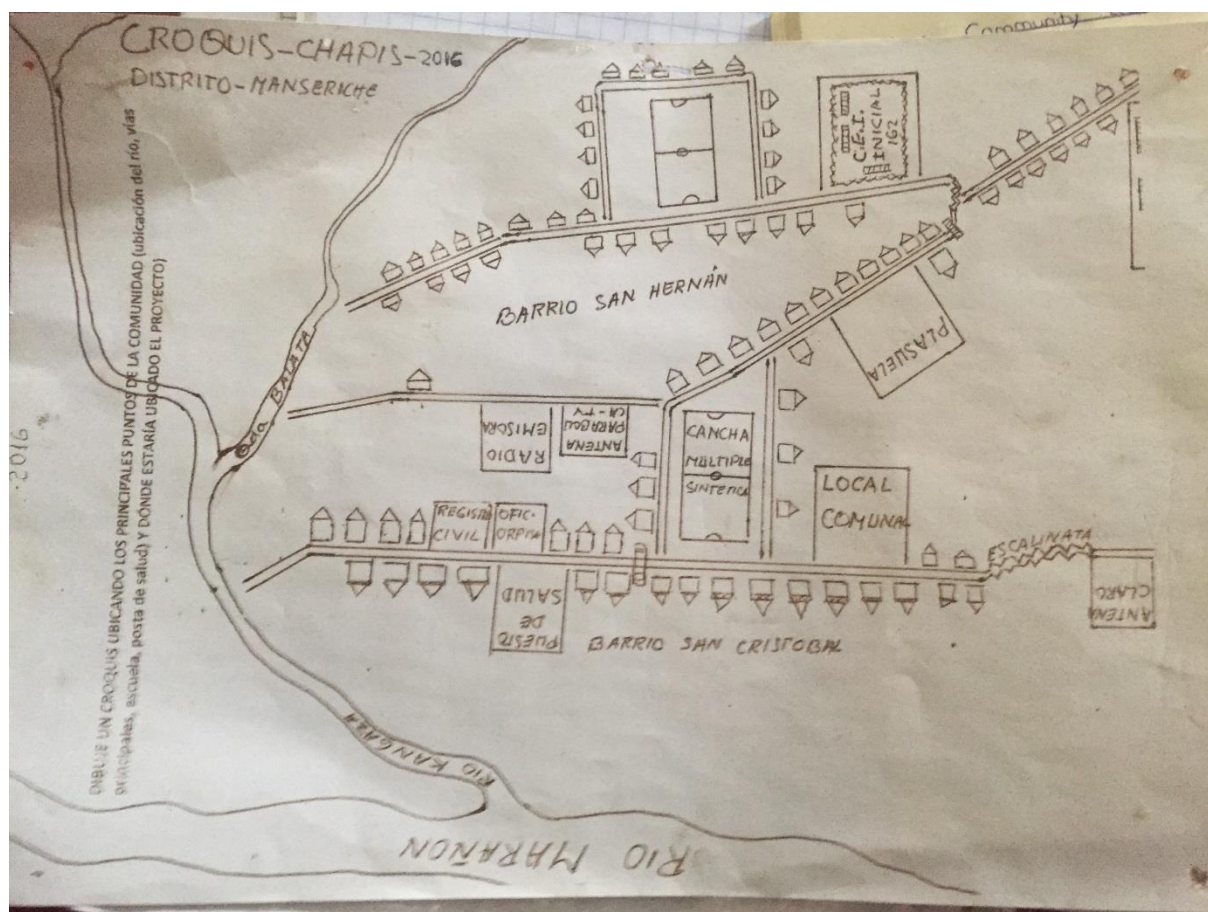 Community
CROQUIS-CHAPIS-2016
DISTRITO-MANSERICHE
DIBUJE UN CROQUIS UBICANDO LOS PRINCIPALES PUNTOS DE LA COMUNIDAD (ubicación del río, vías
principales, escuela, posta de salud) Y DÓNDE ESTARÍA UBICADO EL PROYECTO)
2016
C.E.I.
INICIAL
162
BARRIO SAN HERNÁN
PLASUELA
Qda. BALATA
RADIO
EMISORA
ANTENA
PARABOLI
CA-TV
CANCHA
MÚLTIPLE
SINTETICA
LOCAL
COMUNAL
REGISTRO
CIVIL
OFIC.
ORPISA
ESCALINATA
ANTENA
CLARO
PUESTO
DE
SALUD
BARRIO SAN CRISTOBAL
RIO KANGAZA
RIO MARAÑON